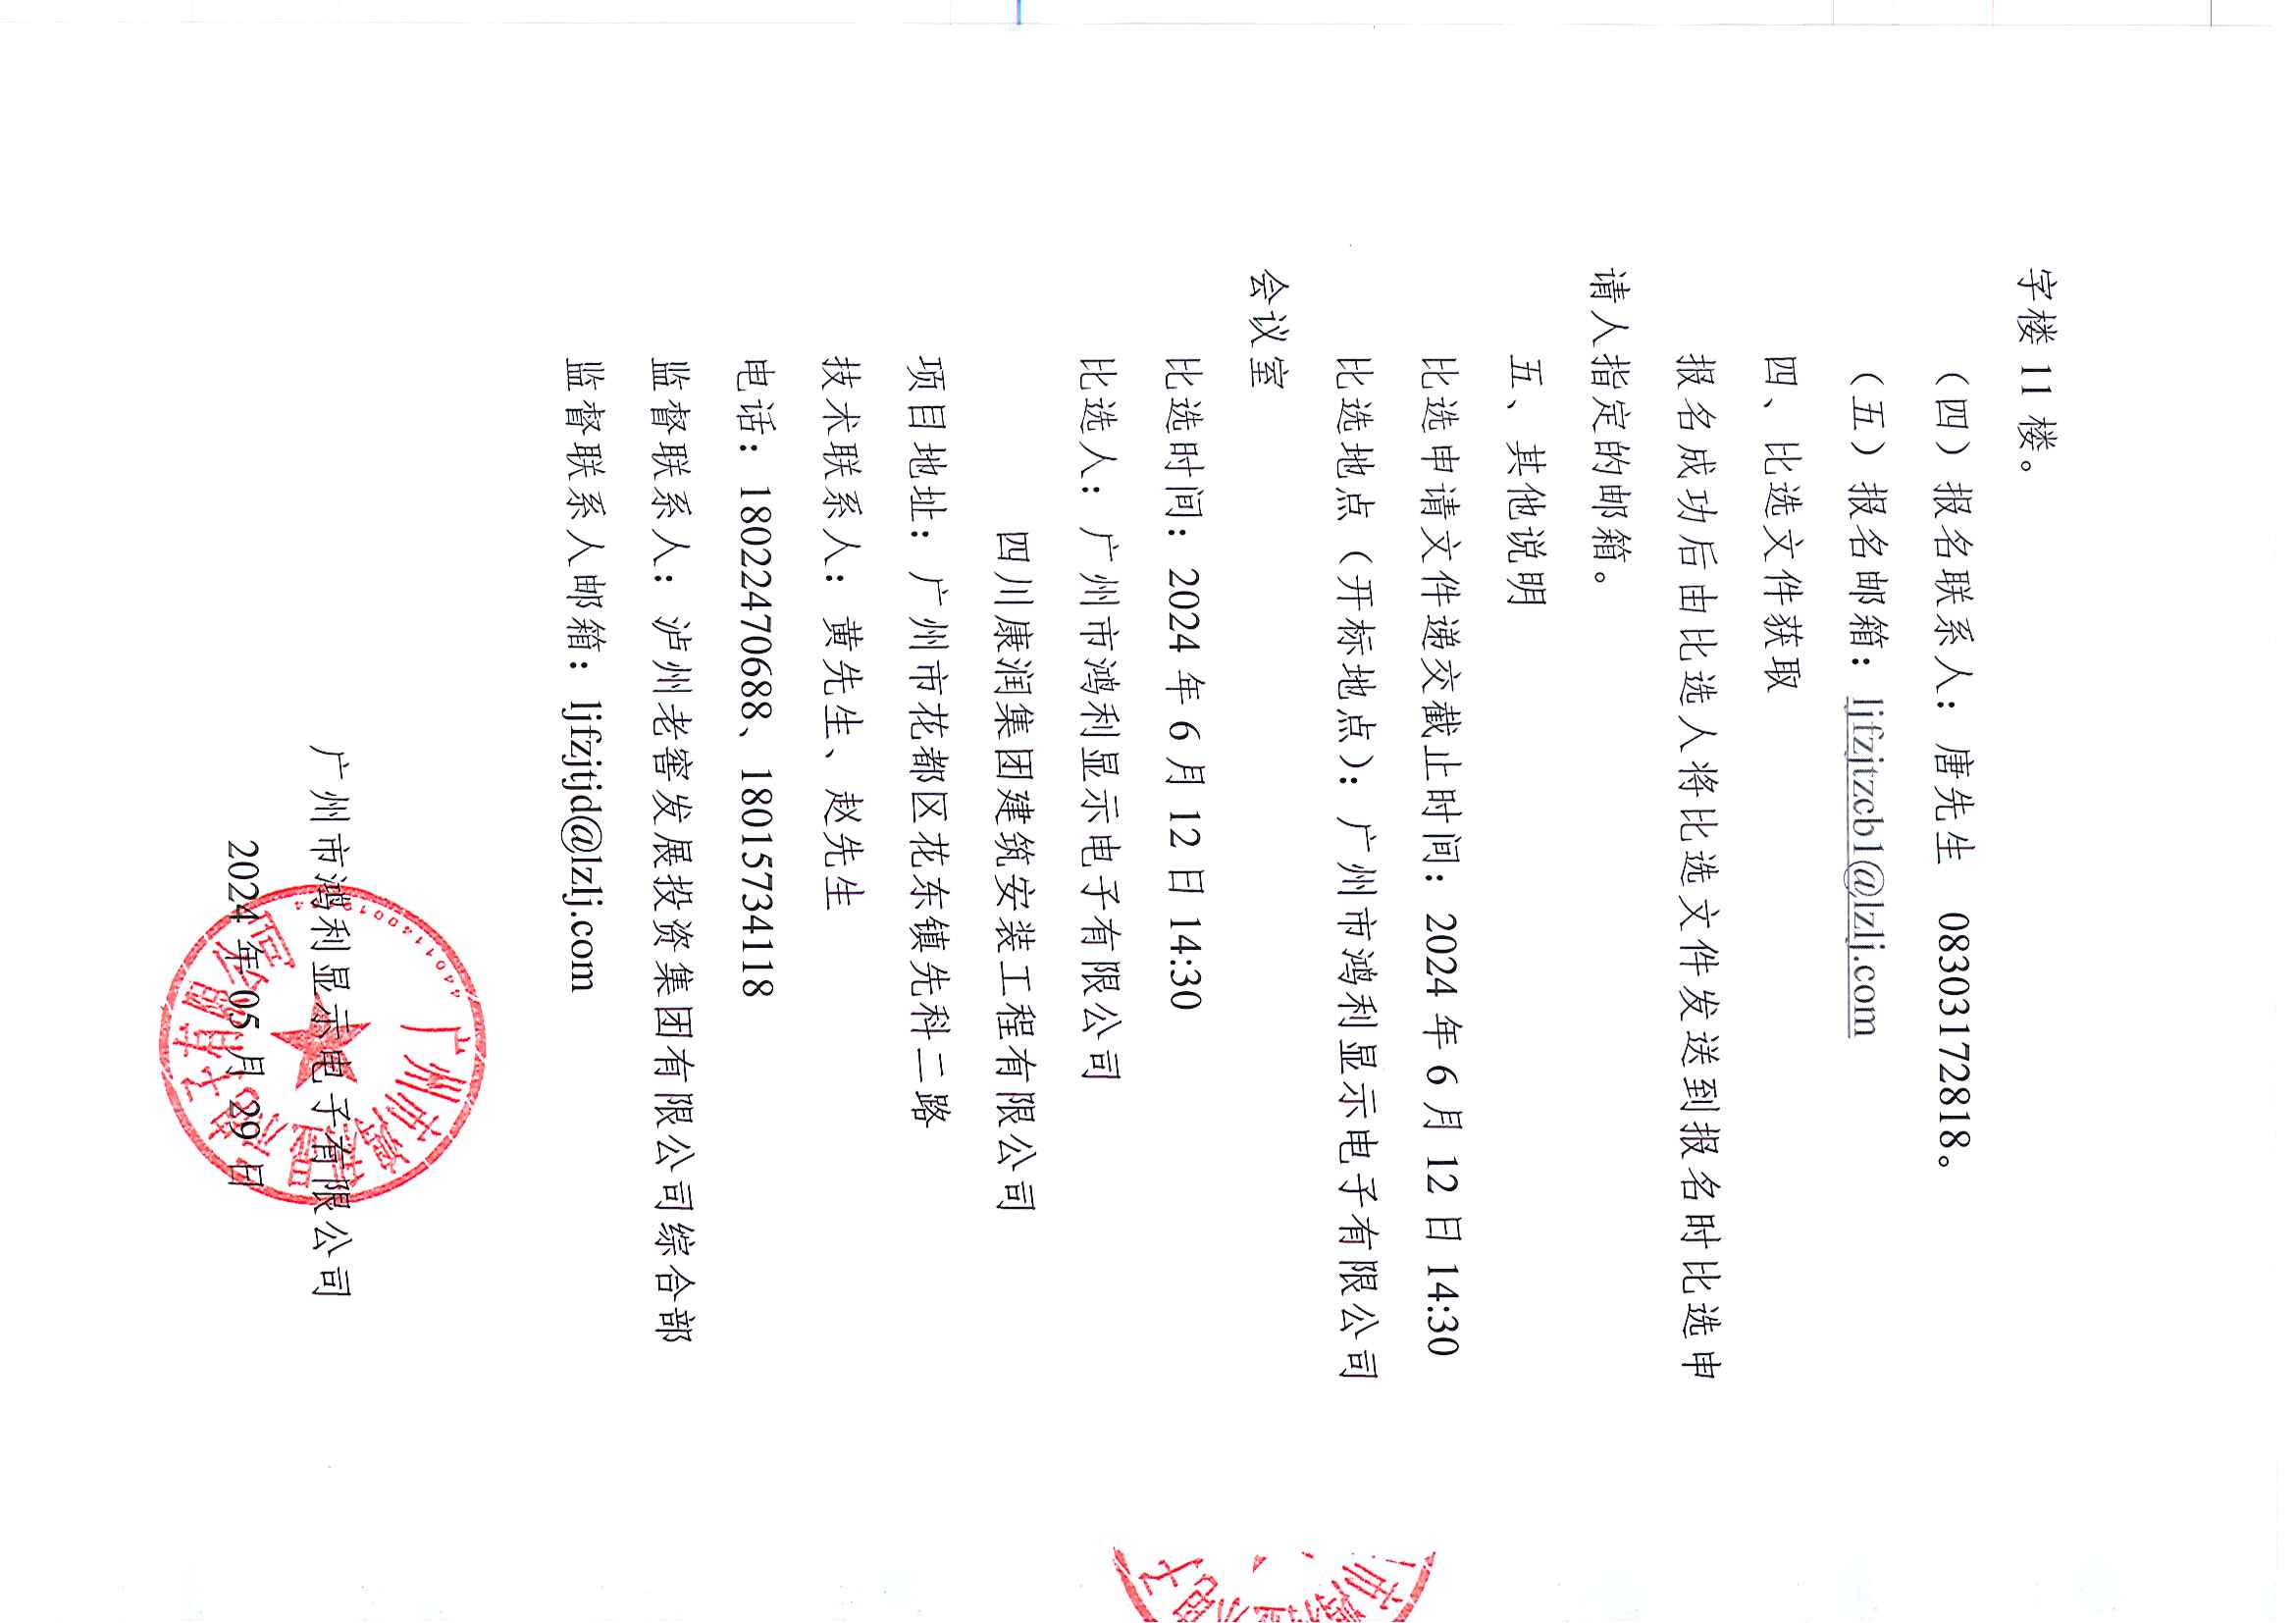 字楼 11 楼。
（四）报名联系人：唐先生 08303172818。
（五）报名邮箱：ljfzjtzcb1@lzlj.com
四、比选文件获取
报名成功后由比选人将比选文件发送到报名时比选申
请人指定的邮箱。
五、其他说明
比选申请文件递交截止时间：2024 年 6 月 12 日 14:30
比选地点（开标地点）：广州市鸿利显示电子有限公司
会议室
比选时间：2024 年 6 月 12 日 14:30
比选人：广州市鸿利显示电子有限公司
四川康润集团建筑安装工程有限公司
项目地址：广州市花都区花东镇先科二路
技术联系人：黄先生、赵先生
电话：18022470688、18015734118
监督联系人：泸州老窖发展投资集团有限公司综合部
监督联系人邮箱：ljfzjtjd@lzlj.com
广州市鸿利显示电子有限公司
2024 年 05 月 29 日
广州市鸿利显示电子有限公司